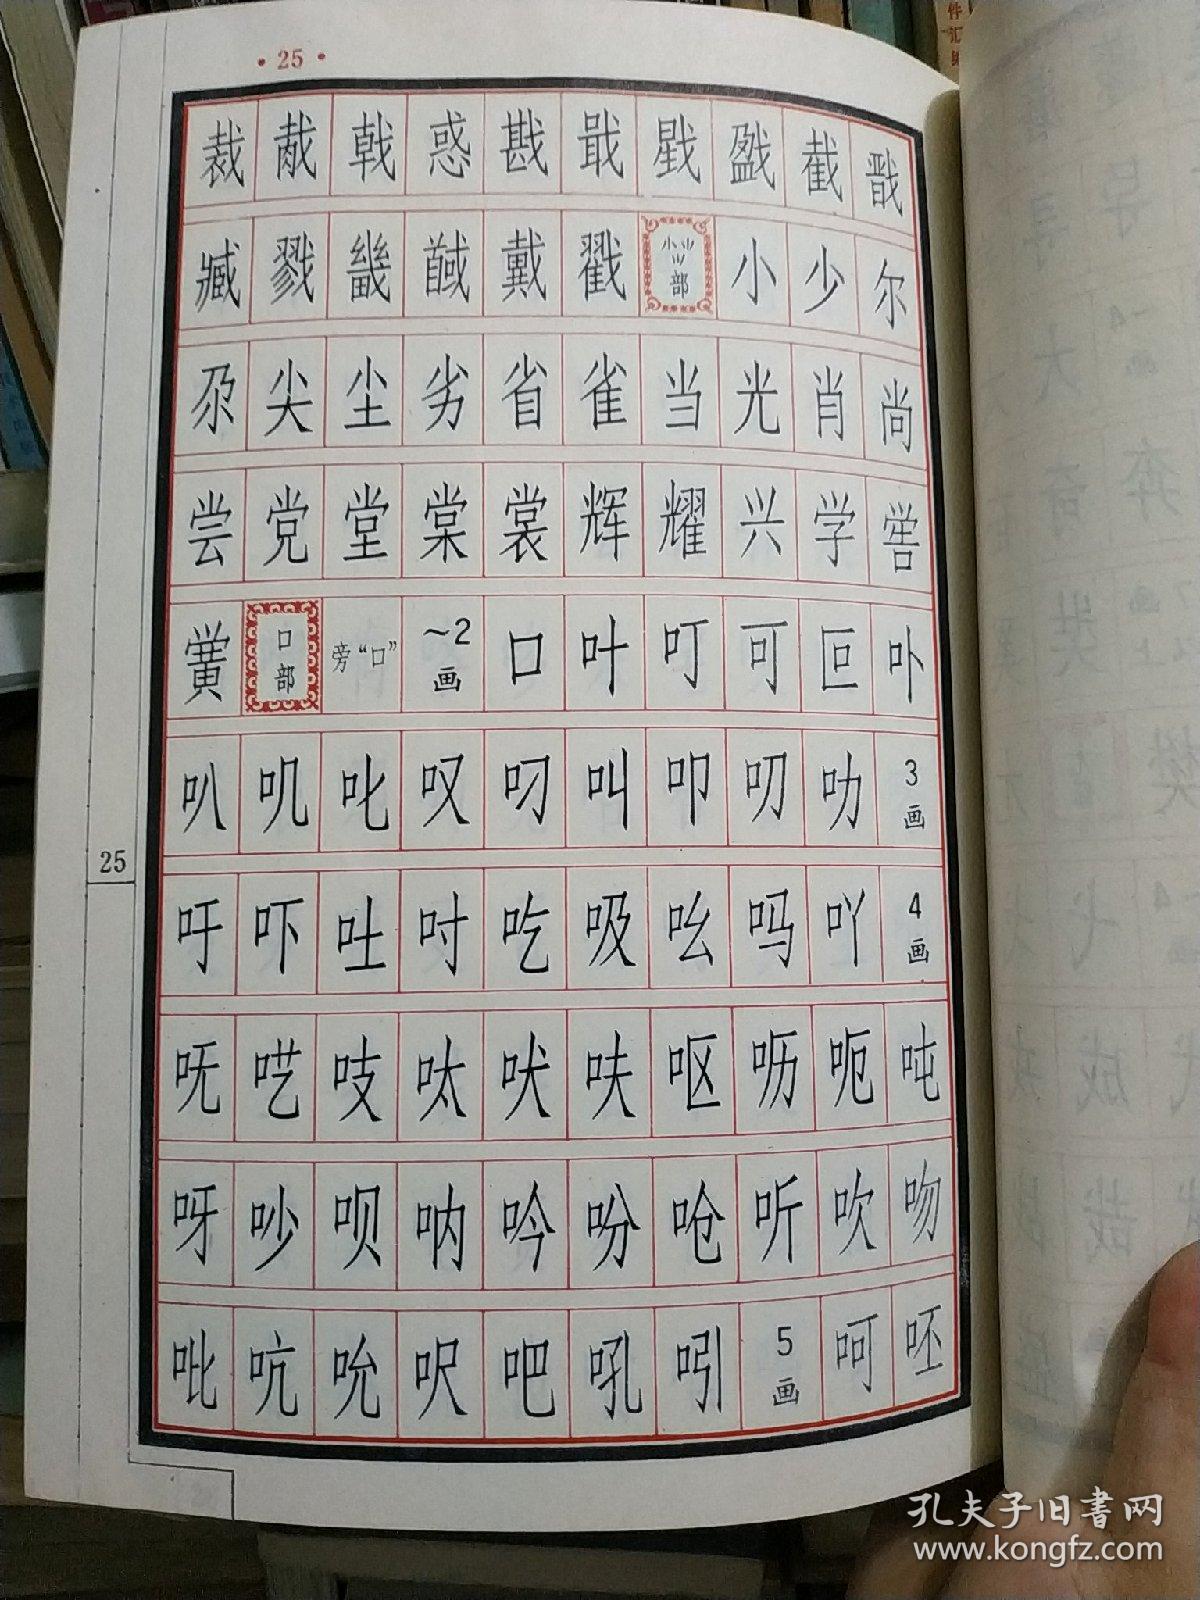 ·25·
裁 胾 戟 惑 戡 戢 戥 戤 截 戬
臧 戮 畿 馘 戴 戳 小⺌⺍部 小 少 尔
尕 尖 尘 劣 省 雀 当 光 肖 尚
尝 党 堂 棠 裳 辉 耀 兴 学 喾
黉 口部 旁“口” ～2画 口 叶 叮 可 叵 卟
叭 叽 叱 叹 叼 叫 叩 叨 叻 3画
吁 吓 吐 吋 吃 吸 吆 吗 吖 4画
呒 呓 吱 呔 吠 呋 呕 呖 呃 吨
呀 吵 呗 呐 吟 吩 呛 听 吹 吻
吡 吭 吮 呎 吧 吼 吲 5画 呵 呸
25
孔夫子旧书网
www.kongfz.com